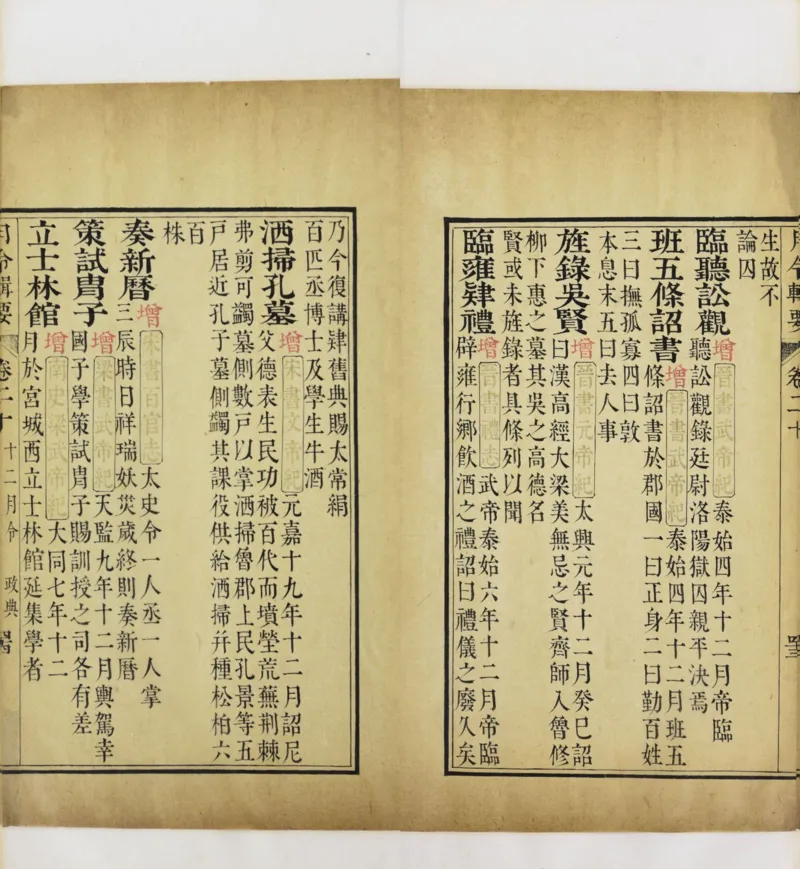 月令輯要 卷二十
生故不
論囚
臨聽訟觀
增 晉書武帝紀 泰始四年十二月帝臨
聽訟觀錄廷尉洛陽獄囚親平決焉
班五條詔書
增 晉書武帝紀 泰始四年十二月班五
條詔書於郡國一曰正身二曰勤百姓
三曰撫孤寡四曰敦
本息末五曰去人事
旌錄吳賢
增 晉書元帝紀 太興元年十二月癸巳詔
曰漢高經大梁美無忌之賢齊師入魯修
柳下惠之墓其吳之高德名
賢或未旌錄者具條列以聞
臨雍肄禮
增 晉書禮志 武帝泰始六年十二月帝臨
辟雍行鄉飲酒之禮詔曰禮儀之廢久矣
乃今復講肄舊典賜太常絹
百匹丞博士及學生牛酒
洒掃孔墓
增 宋書文帝紀 元嘉十九年十二月詔尼
父德表生民功被百代而墳塋荒蕪荆棘
弗剪可蠲墓側數戶以掌洒掃魯郡上民孔景等五
戶居近孔子墓側蠲其課役供給洒掃并種松柏六
百
株
奏新曆
增 宋書百官志 太史令一人丞一人掌
三辰時日祥瑞妖災歲終則奏新曆
策試胄子
增 梁書武帝紀 天監九年十二月輿駕幸
國子學策試胄子賜訓授之司各有差
立士林館
增 南史梁武帝紀 大同七年十二
月於宮城西立士林館延集學者
月令輯要 卷二十 十二月令 政典